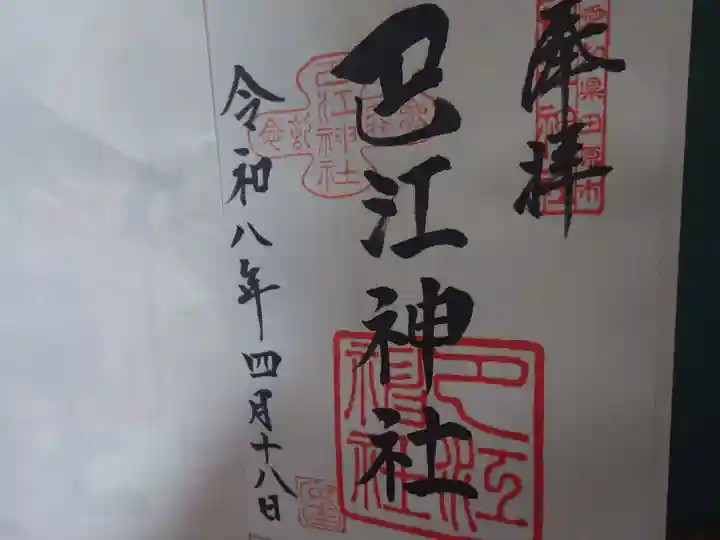 奉拝
巴江神社
令和八年四月十八日
巴江神社
巴江神社